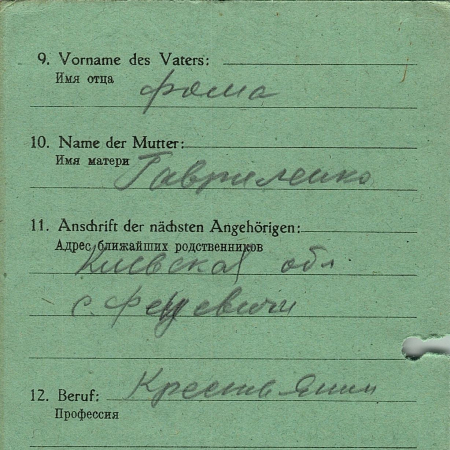 9. Vorname des Vaters:
Имя отца
фома
10. Name der Mutter:
Имя матери
Гавриленко
11. Anschrift der nächsten Angehörigen:
Адрес ближайших родственников
Киевская обл
с.
12. Beruf: Крестьянин
Профессия